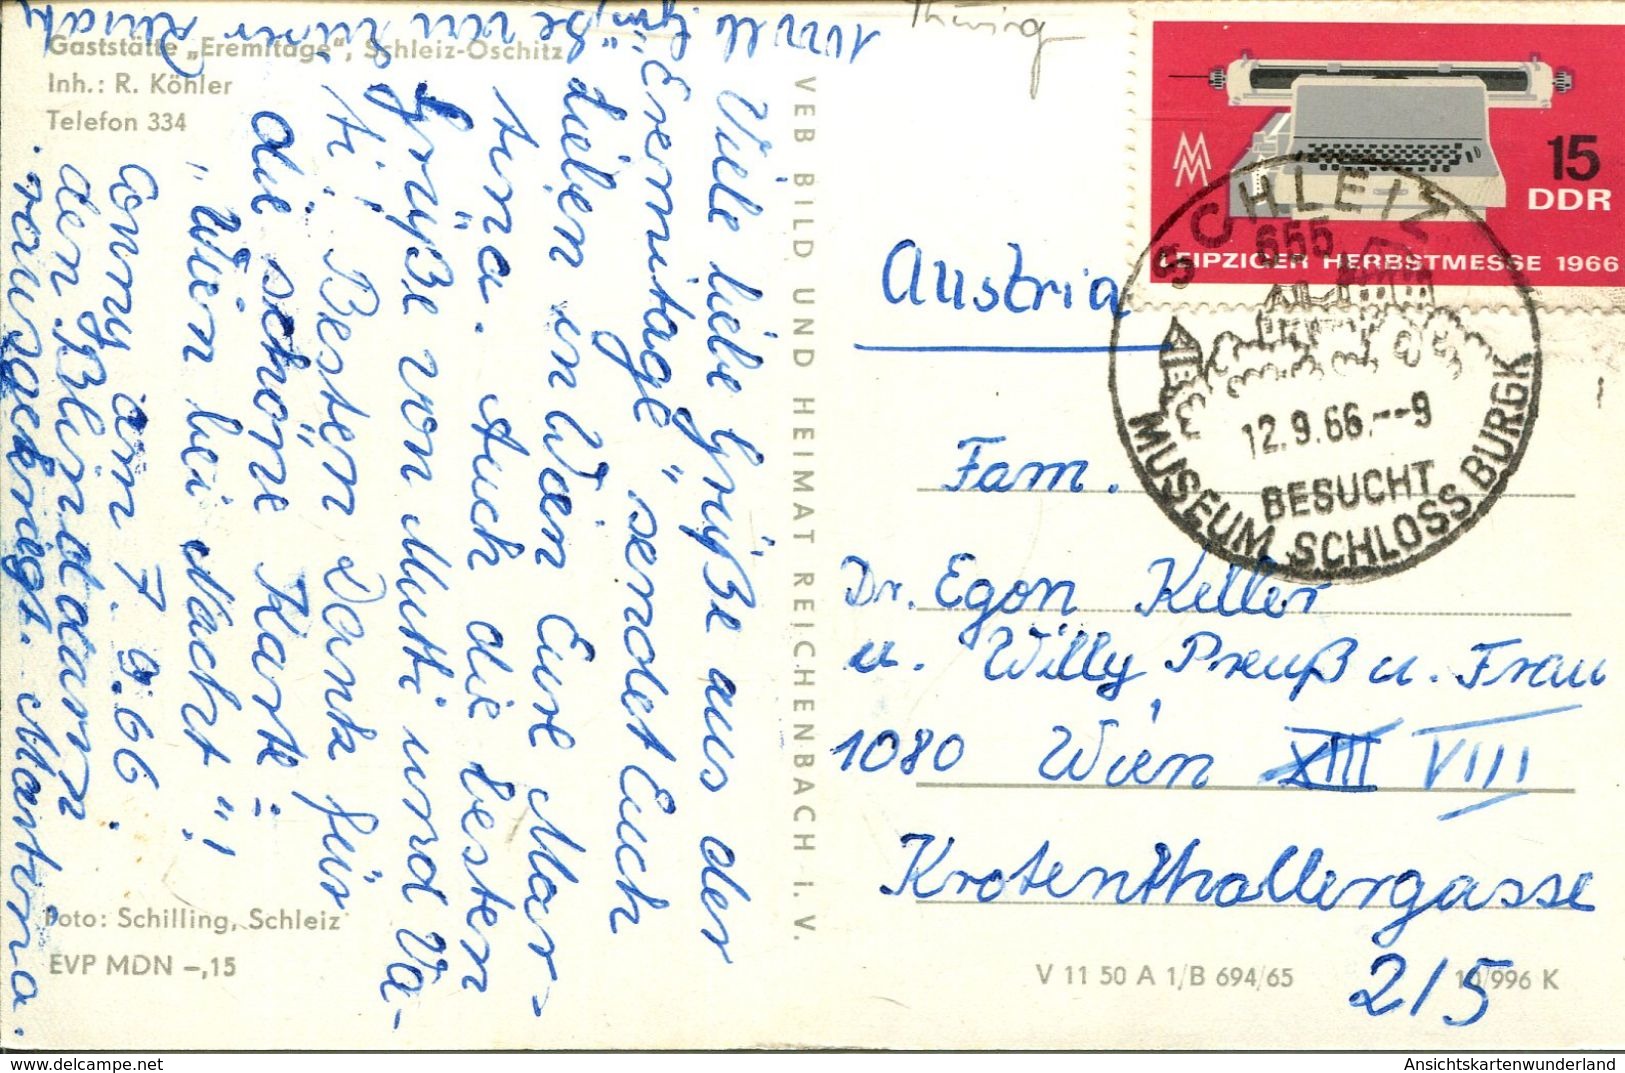 Gaststätte „Eremitage“, Schleiz-Oschitz
Inh.: R. Köhler
Telefon 334
Viele liebe Grüße aus der
„Eremitage" sendet Euch
lieben in Wien Eure Mar-
tina. Auch die besten
Grüße von Mutti und Va-
ti. Besten Dank für
die schöne Karte:
„Wien bei Nacht"!
Conny am 7. 9. 66
den Blinddarm
rausgekriegt. Martina.
VEB BILD UND HEIMAT REICHENBACH I. V.
Foto: Schilling, Schleiz
EVP MDN –,15
Thüring
15
DDR
LEIPZIGER HERBSTMESSE 1966
SCHLEIZ
655
12.9.66.--9
BESUCHT
MUSEUM SCHLOSS BURGK
Austria
Fam.
Dr. Egon Keller
u. Willy Preuß u. Frau
1080 Wien XIII VIII
Krotenthallergasse
2/5
V 11 50 A 1/B 694/65
10/996 K
Ansichtskartenwunderland